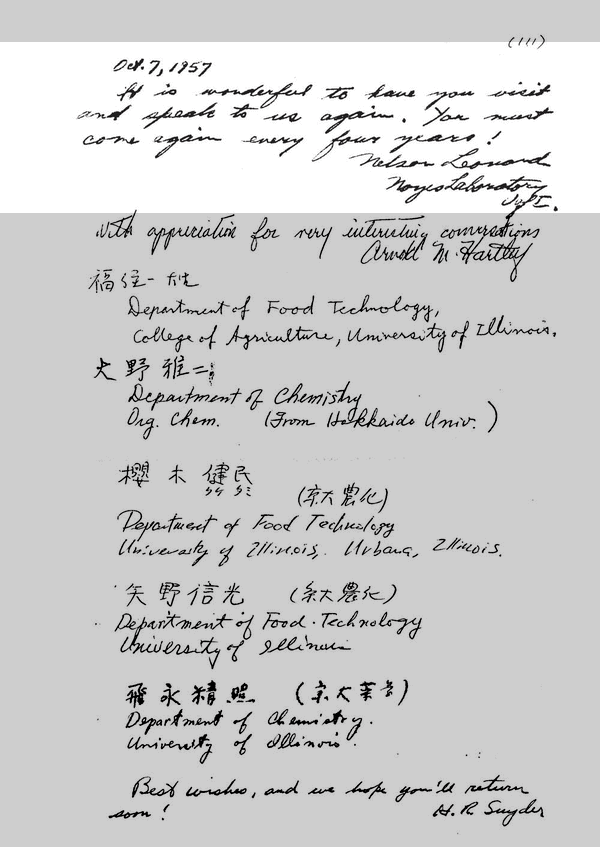 (111)
Oct. 7, 1957
It is wonderful to have you visit
and speak to us again. You must
come again every four years!
Nelson Leonard
Noyes Laboratory
U of I.
With appreciation for very interesting conversations
Arnold M. Hartley
福住一雄
Department of Food Technology,
College of Agriculture, University of Illinois.
大野雅二
Department of Chemistry
Org. Chem. (From Hokkaido Univ.)
櫻木健民
(京大農化)
Department of Food Technology
University of Illinois, Urbana, Illinois.
矢野信光 (京大農化)
Department of Food Technology
University of Illinois
飛永精照 (京大薬)
Department of Chemistry.
University of Illinois.
Best wishes, and we hope you'll return
soon! H. R. Snyder